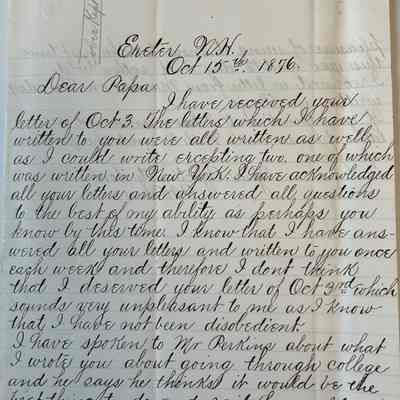 Exeter N.H.
Oct 15th. 1876.
Dear Papa
I have received your
letter of Oct 3. The letters which I have
written to you were all written as well
as I could write excepting two, one of which
was written in New York. I have acknowledged
all your letters and answered all questions
to the best of my ability as perhaps you
know by this time. I know that I have ans-
wered all your letters and written to you once
each week and therefore I dont think
that I deserved your letter of Oct 3rd which
sounds very unpleasant to me as I know
that I have not been disobedient.
I have spoken to Mr Perkins about what
I wrote you about going through college
and he says he thinks it would be the